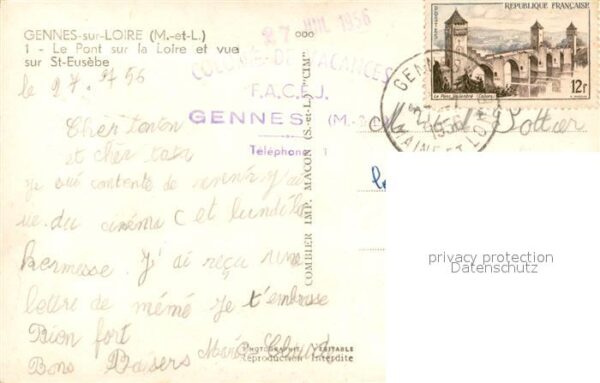 GENNES-sur-LOIRE (M.-et-L.)
1 - Le Pont sur la Loire et vue
sur St-Eusèbe
le 27. 7 56
Cher tonton
et cher tata
je sui contente de
du cinéma et lundi la
kermesse. J'ai reçu une
lettre de mémé je t'embrasse
Bien fort
Bons Basers Marie
27 JUIL 1956
COLONIE DE VACANCES
F.A.C.E.J.
GENNES (M.-&-L.)
Téléphone 1
COMBIER IMP. MACON (S.-et-L.) "CIM"
PHOTOGRAPHIE VÉRITABLE
Reproduction Interdite
REPUBLIQUE FRANÇAISE
POSTES
Le Pont Valentré (Cahors)
12f
GENNES
1956
MAINE ET LOIRE
Pottier
privacy protection
Datenschutz